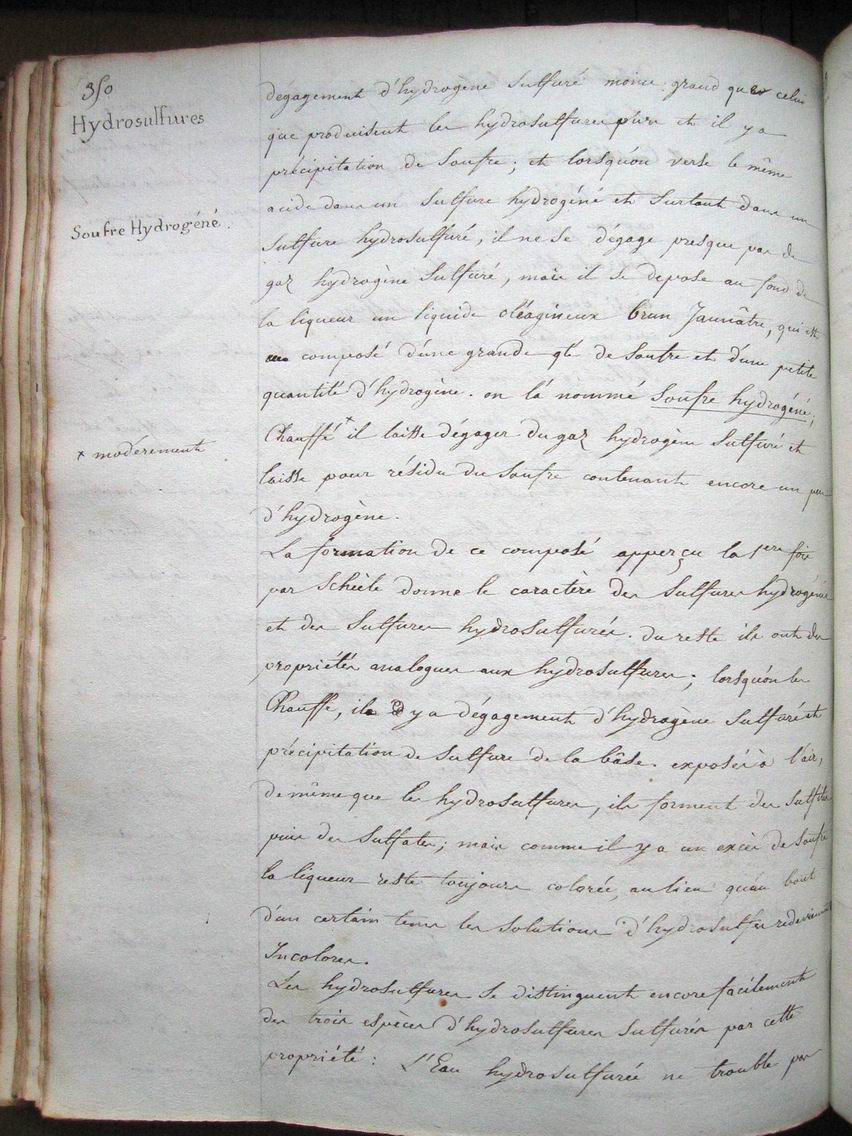 350
Hydrosulfures
Soufre Hydrogéné.
x modérement
degagement d'hydrogene sulfuré moins grand que celui
que produisent les hydrosulfures purs et il y a
précipitation de Soufre; et lorsqu'on verse le même
acide dans un Sulfure hydrogéné et surtout dans un
Sulfure hydrosulfuré, il ne se dégage presque pas de
gaz hydrogène Sulfuré, mais il se depose au fond de
la liqueur un liquide oléagineux brun Jaunâtre, qui est
composé d'une grande qté de Soufre et d'une petite
quantité d'hydrogène. on l'a nommé Soufre hydrogéné;
Chauffé x il laisse dégager du gaz hydrogène Sulfuré et
laisse pour résidu du Soufre contenant encore un peu
d'hydrogène.
La formation de ce composé apperçu la 1ere fois
par Schéèle donne le caractère des Sulfures hydrogénés
et des Sulfures hydrosulfurés. du reste ils ont des
propriétés analogues aux hydrosulfures; lorsqu'on les
Chauffe, il y a dégagement d'hydrogène Sulfuré et
précipitation de Sulfure de la bâse. exposés à l'air,
de même que les hydrosulfures, ils forment des Sulfites
puis des Sulfates; mais comme il y a un excès de Soufre
la liqueur reste toujours colorée, au lieu qu'au bout
d'un certain tems les Solutions d'hydrosulfes redeviennent
Incolores.
Les hydrosulfures se distinguent encore facilement
des trois espèces d'hydrosulfures Sulfurés par cette
propriété: L'Eau hydrosulfurée ne trouble pas